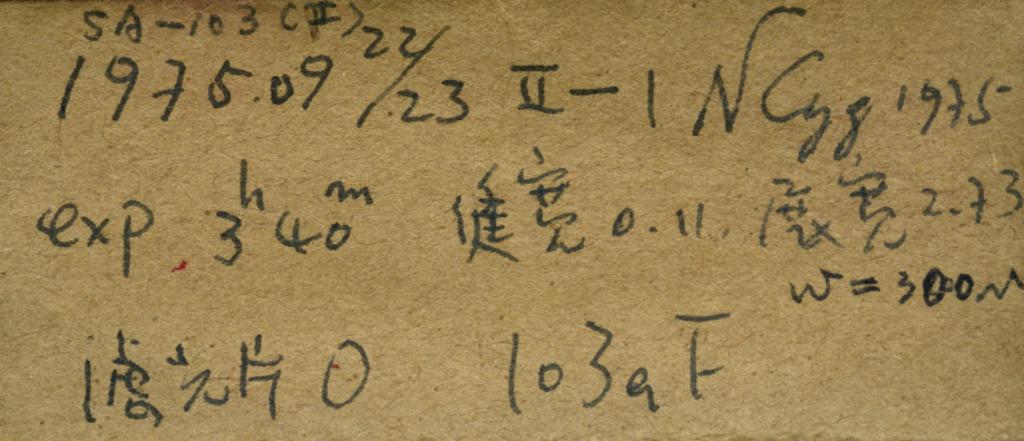 SA-103(II)
1975.09 22/23 II-1 N Cyg 1975
exp. 3h 40m 縫宽 0.11. 展宽 2.73
W = 300μ
滤光片 0 103aF